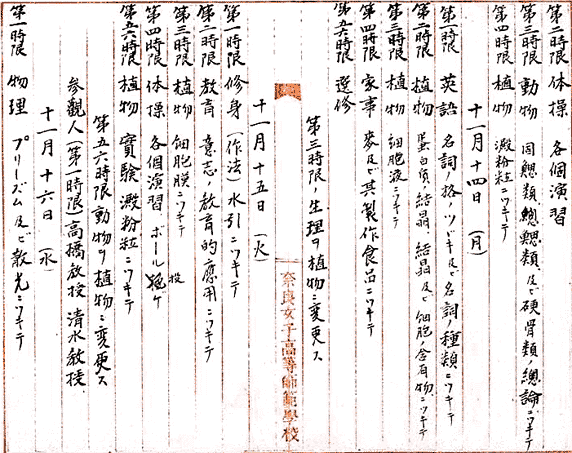 第二時限 体操 各個演習
第三時限 動物 同鰓類總鰓類及ビ硬骨類ノ總論ニツキテ
第四時限 植物 澱粉粒ニツキテ
十一月十四日 (月)
第一時限 英語 名詞ノ格ノツヾキ及ビ名詞ノ種類ニツキテ
第二時限 植物 蛋白質ノ結晶、結晶及ビ細胞ノ含有物ニツキテ
第三時限 植物 細胞液ニツキテ
第四時限 家事 麥及ビ其製作食品ニツキテ
第五六時限 選修
第三時限ノ生理ヲ植物ニ変更ス
奈良女子高等師範學校
十一月十五日 (火)
第一時限 修身 (作法) 水引ニツキテ
第二時限 教育 意志ノ教育的應用ニツキテ
第三時限 植物 細胞膜ニツキテ
第四時限 体操 各個演習 ボール投ケ
第五六時限 植物 實験 澱粉粒ニツキテ
第五六時限動物ヲ植物ニ変更ス
参觀人(第一時限)高橋教授 清水教授
十一月十六日 (水)
第一時限 物理 プリーズム及ビ散光ニツキテ